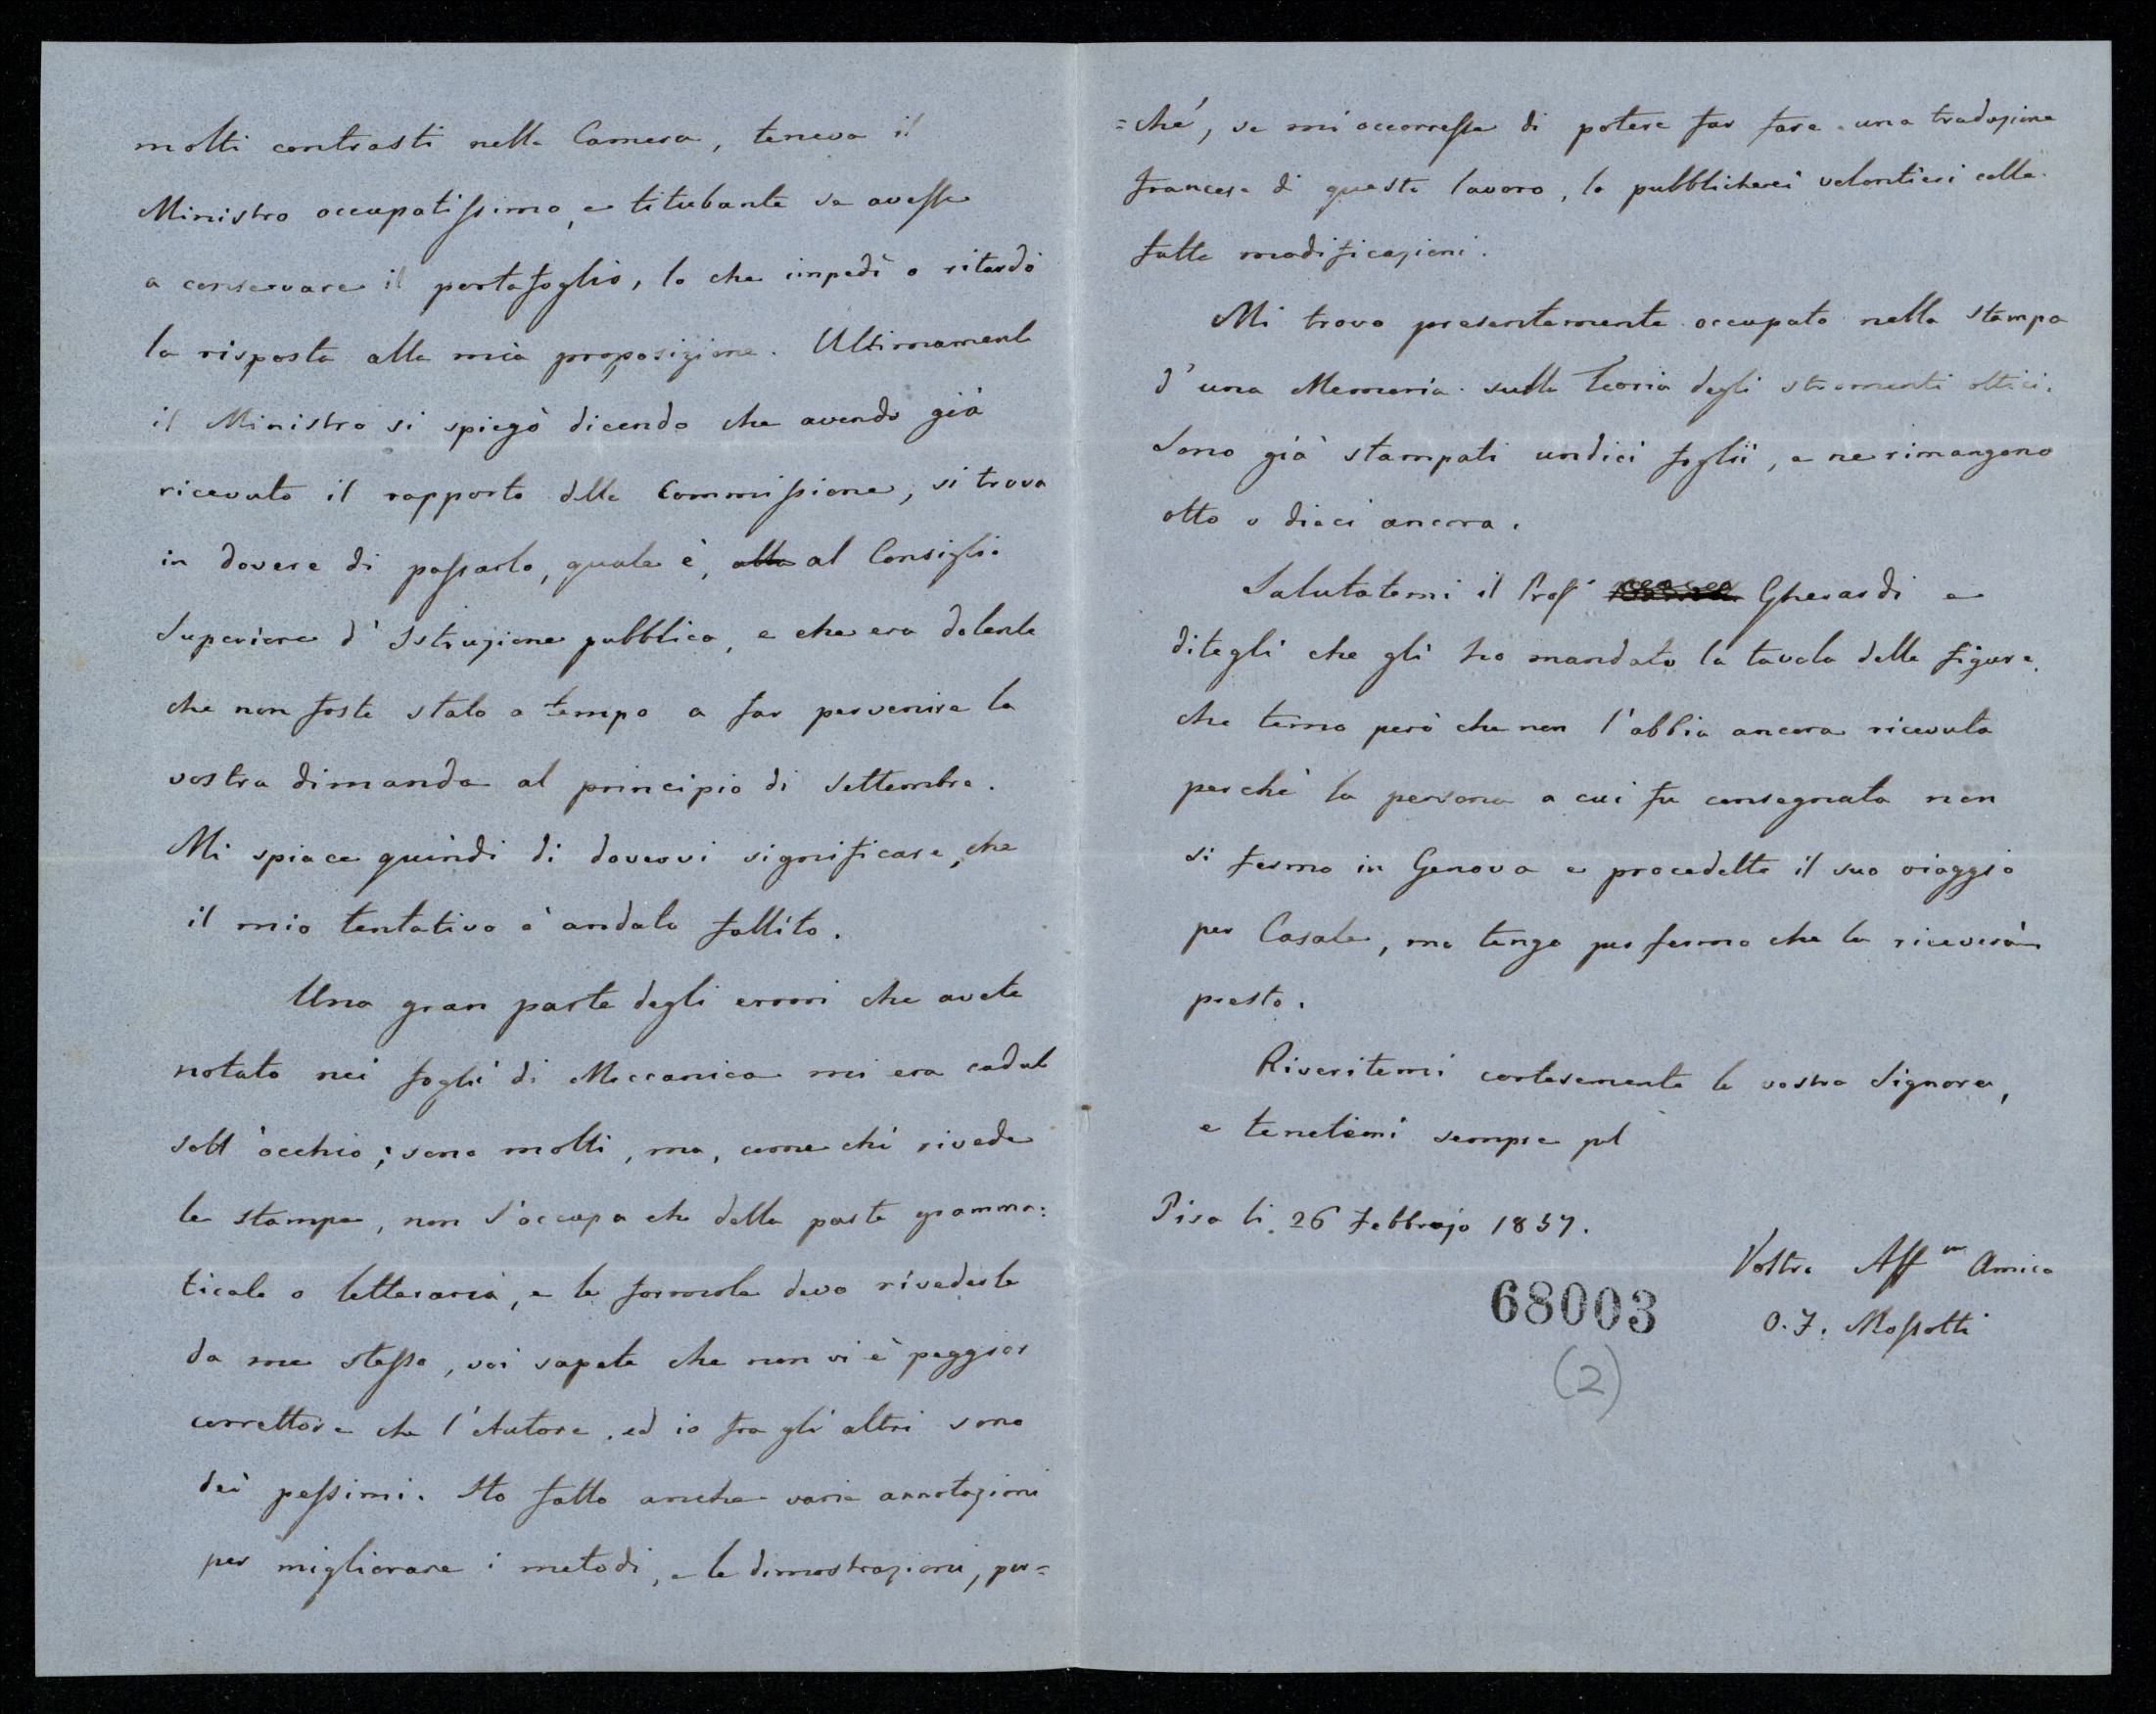 molti contrasti nella Camera, teneva il
Ministro occupatissimo, e titubante se avesse
a conservare il portafoglio, lo che impedì o ritardò
la risposta alla mia proposizione. Ultimamente
il Ministro si spiegò dicendo che avendo già
ricevuto il rapporto della Commissione, si trova
in dovere di passarlo, quale è, alla al Consiglio
Superiore d'Istruzione pubblica, e che era dolente
che non foste stato a tempo a far pervenire la
vostra dimanda al principio di Settembre.
Mi spiace quindi di dovervi significare, che
il mio tentativo è andato fallito.
Una gran parte degli errori che avete
notato nei fogli di Meccanica mi era caduta
sott'occhio; sono molti, ma, come chi rivede
le stampe, non s'occupa che della parte gramma:
ticale o letteraria, e le formole devo rivederle
da me stesso, voi sapete che non vi è peggior
correttore che l'Autore, ed io fra gli altri sono
dei pessimi. Ho fatto anche varie annotazioni
per migliorare i metodi, e le dimostrazioni, per=
=ché, se mi occorresse di potere far fare una traduzione
francese di questo lavoro, lo pubblicherei volontieri colle
fatte modificazioni.
Mi trovo presentemente occupato nella stampa
d'una Memoria sulla Teoria degli stromenti ottici.
Sono già stampati undici foglii, e ne rimangono
otto o dieci ancora.
Salutatemi il Prof. Gherardi e
ditegli che gli ho mandato la tavola delle figure,
che temo però che non l'abbia ancora ricevuta
perchè la persona a cui fu consegnata non
si fermò in Genova e procedette il suo viaggio
per Casale, ma tengo per fermo che la riceverà
presto.
Riveritemi cortesemente la vostra Signora,
e tenetemi sempre pel
Pisa li 26 Febbrajo 1857.
Vostro Aff.mo Amico
O. F. Mossotti
68003
(2)